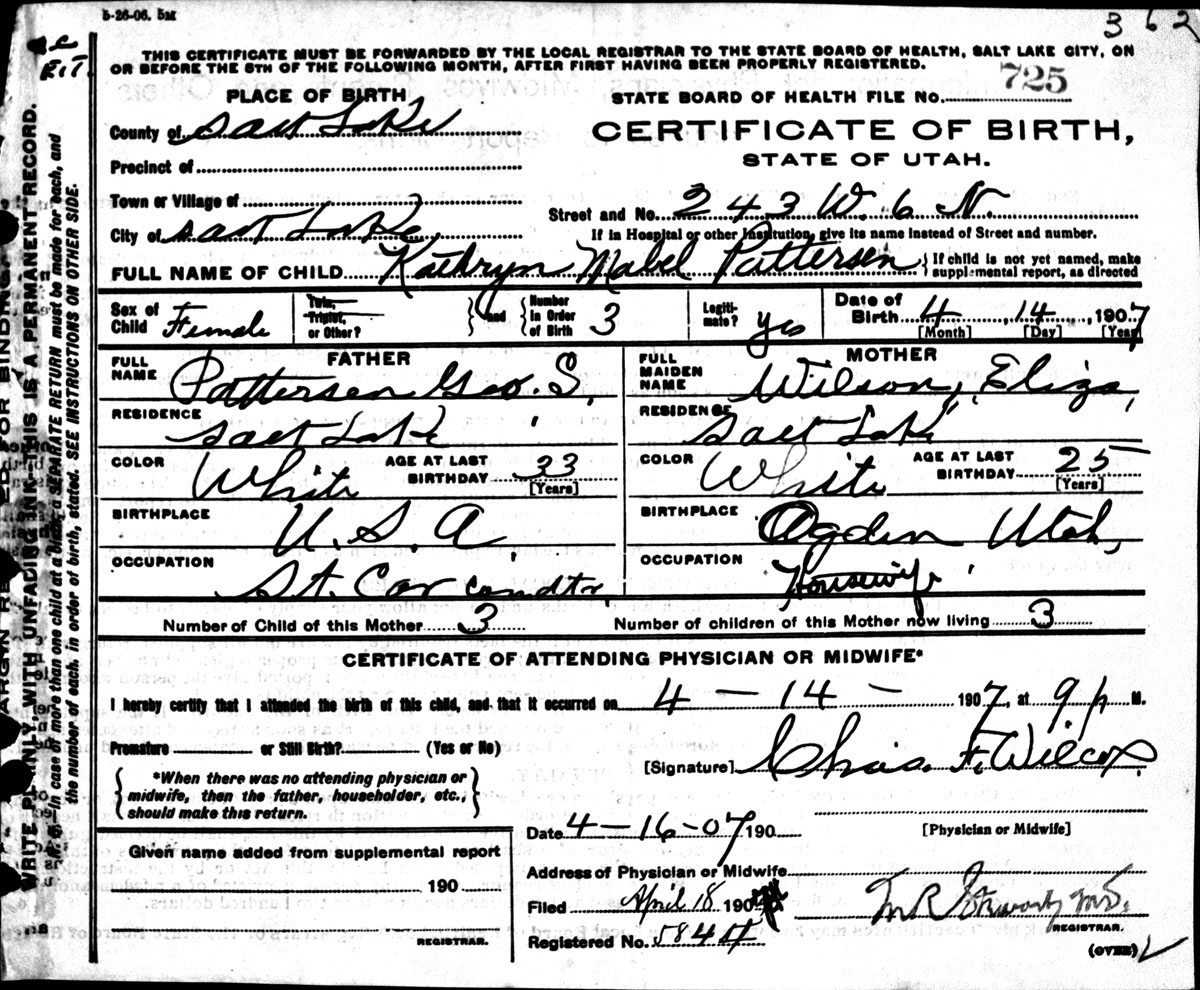 5-26-06. 5M
3 6 2
THIS CERTIFICATE MUST BE FORWARDED BY THE LOCAL REGISTRAR TO THE STATE BOARD OF HEALTH, SALT LAKE CITY, ON
OR BEFORE THE 5TH OF THE FOLLOWING MONTH, AFTER FIRST HAVING BEEN PROPERLY REGISTERED.
PLACE OF BIRTH
STATE BOARD OF HEALTH FILE No. 725
County of Salt Lake
CERTIFICATE OF BIRTH,
STATE OF UTAH.
Precinct of
Town or Village of
Street and No. 243 W. 6 N.
City of Salt Lake
If in Hospital or other Institution, give its name instead of Street and number.
FULL NAME OF CHILD Kathryn Mabel Pattersen
{If child is not yet named, make
supplemental report, as directed
Sex of Child Female
Twin, Triplet, or Other?
and
Number in Order of Birth 3
Legiti-mate? yes
Date of Birth 4 14, 1907
[Month] [Day] [Year]
FATHER
MOTHER
FULL NAME Pattersen Geo. S.
FULL MAIDEN NAME Wilson, Eliza,
RESIDENCE Salt Lake
RESIDENCE Salt Lake
COLOR White AGE AT LAST BIRTHDAY 33 [Years]
COLOR White AGE AT LAST BIRTHDAY 25 [Years]
BIRTHPLACE U. S. A.
BIRTHPLACE Ogden Utah,
OCCUPATION St. Car condtr.
OCCUPATION Housewife
Number of Child of this Mother 3 Number of children of this Mother now living 3
CERTIFICATE OF ATTENDING PHYSICIAN OR MIDWIFE*
I hereby certify that I attended the birth of this child, and that it occurred on 4 - 14 - 1907, at 9 p M.
Premature or Still Birth? (Yes or No)
[Signature] Chas. F. Wilcox.
*When there was no attending physician or
midwife, then the father, householder, etc.,
should make this return.
Date 4-16-07 190
[Physician or Midwife]
Given name added from supplemental report
190
REGISTRAR.
Address of Physician or Midwife
Filed April 18 190
REGISTRAR.
Registered No. 584
(OVER)
WRITE PLAINLY, WITH UNFADING INK—THIS IS A PERMANENT RECORD.
N. B.—In case of more than one child at a birth, a SEPARATE RETURN must be made for each, and
the number of each, in order of birth, stated. SEE INSTRUCTIONS ON OTHER SIDE.